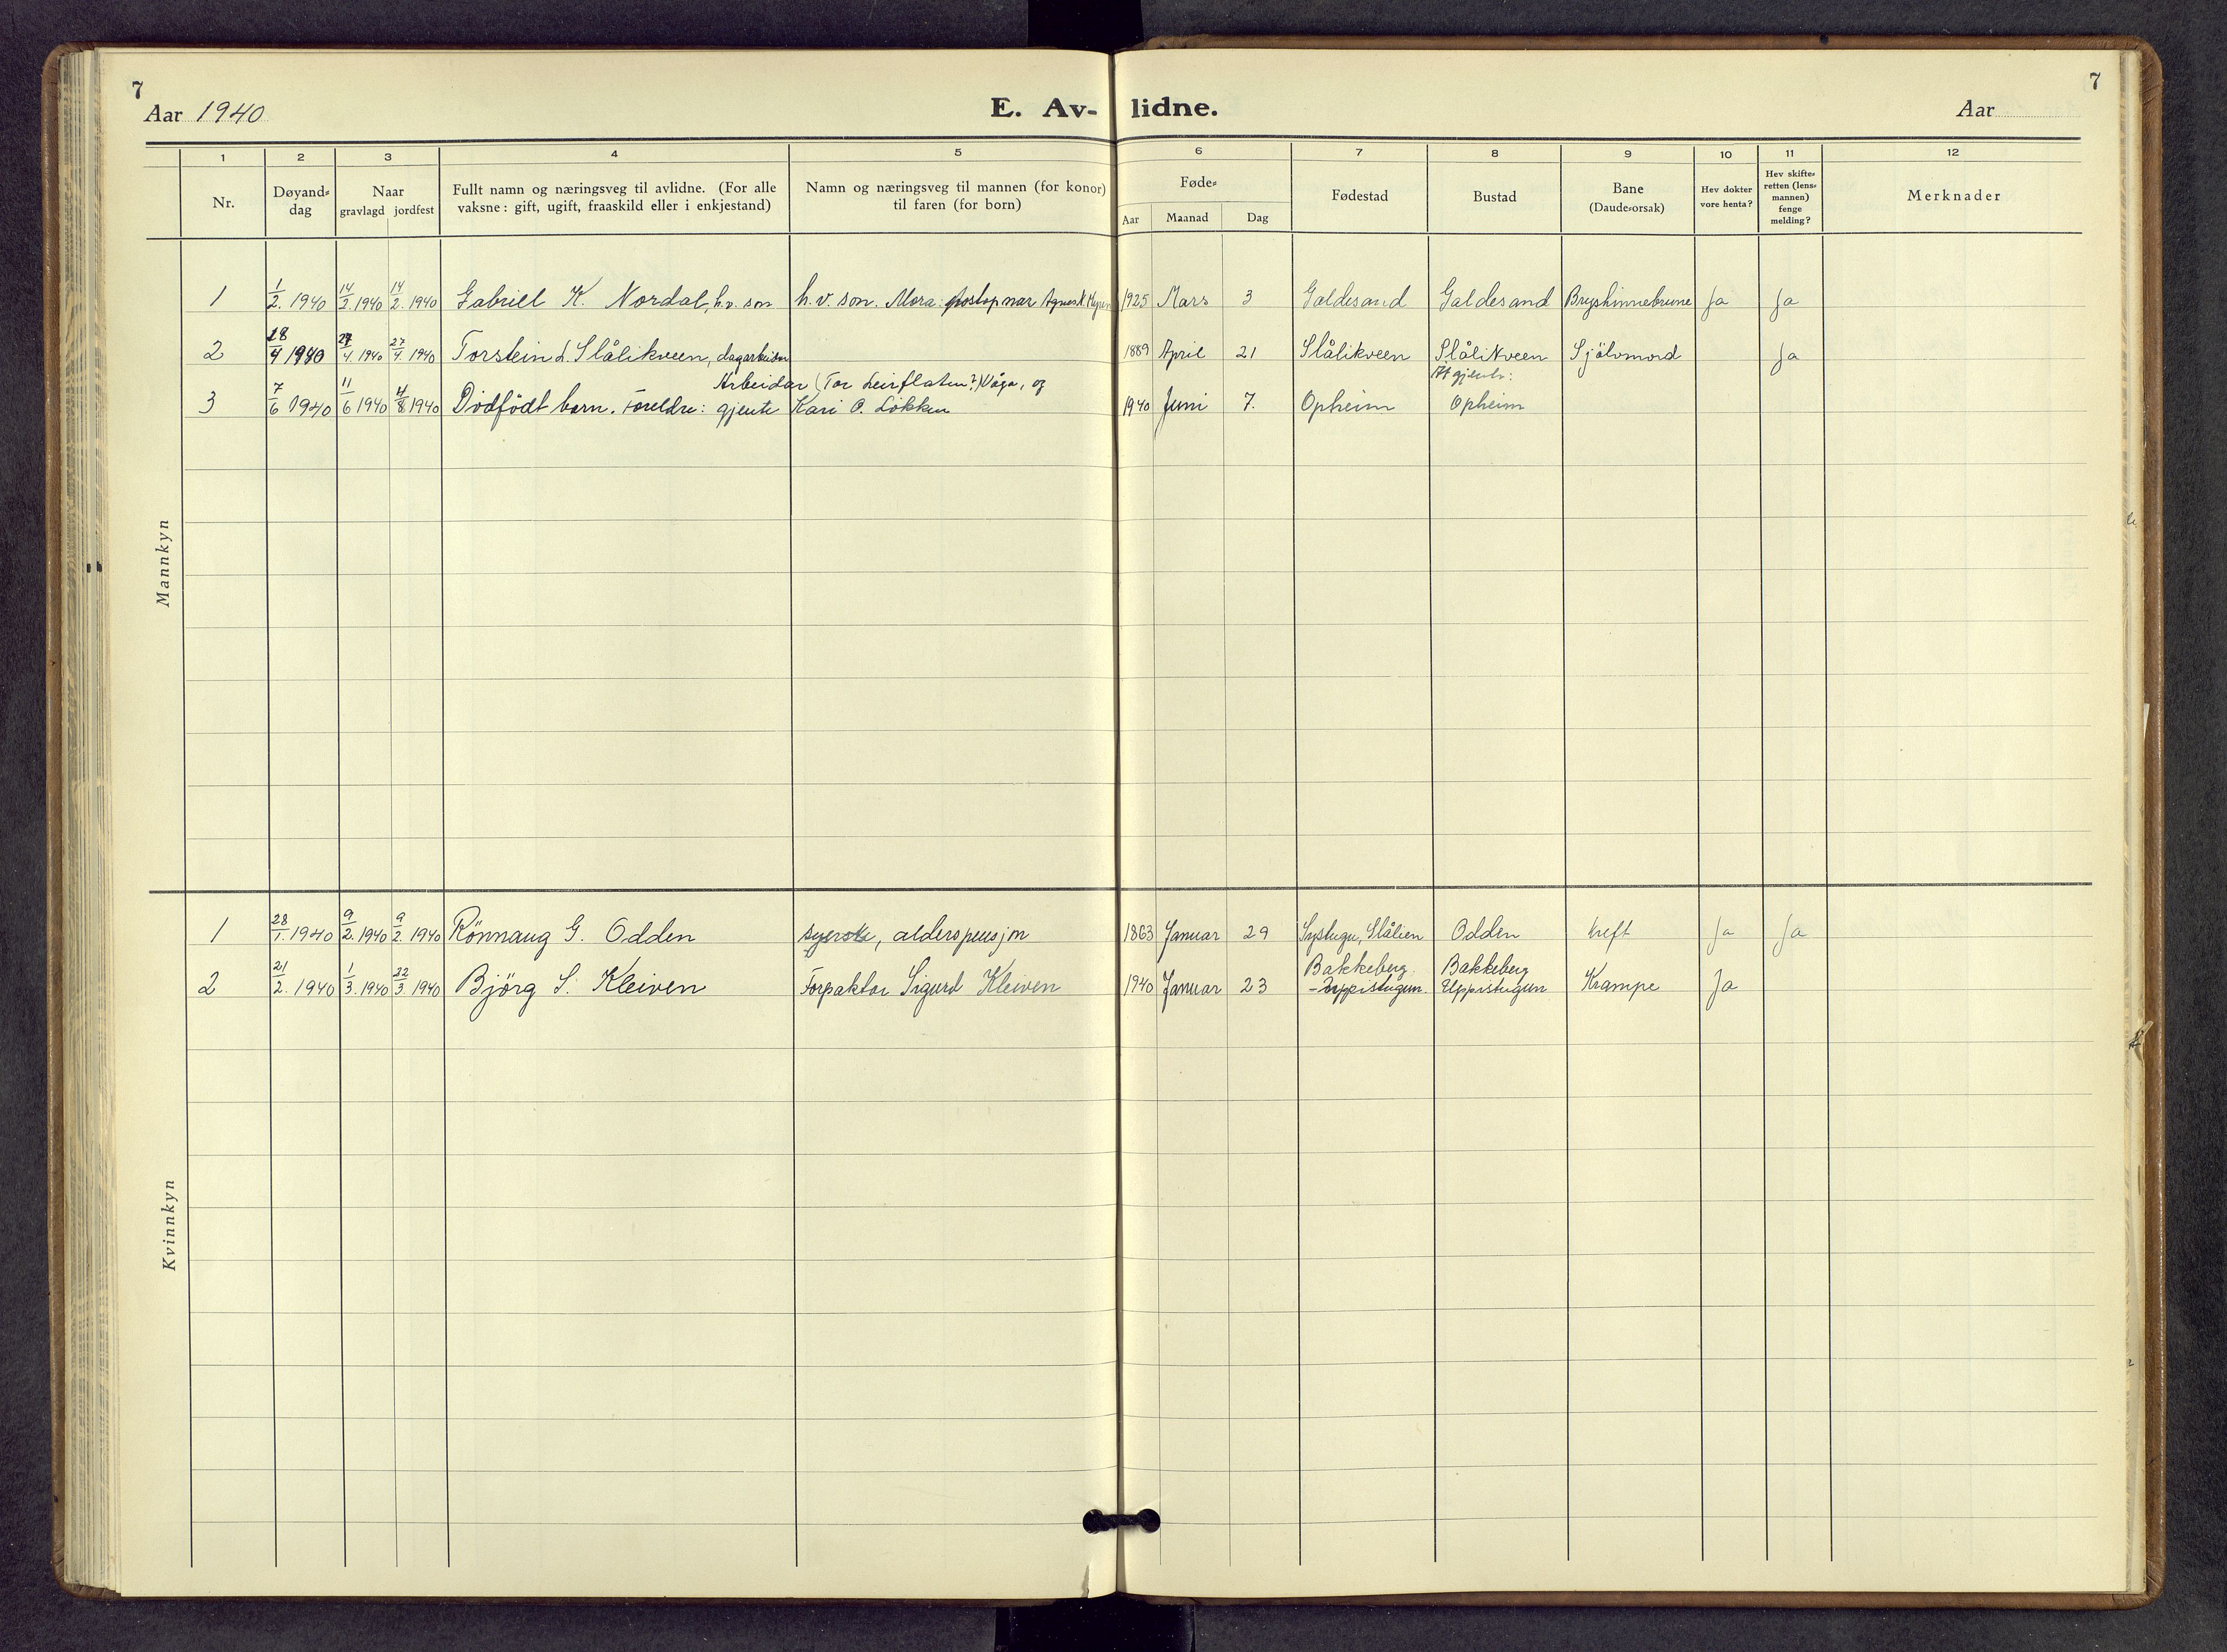 7
7
Aar 1940
E. Av-lidne.
Aar
1 2 3 4 5 6 7 8 9 10 11 12
Nr.
Døyand-
dag
Naar
gravlagd jordfest
Fullt namn og næringsveg til avlidne. (For alle
vaksne: gift, ugift, fraaskild eller i enkjestand)
Namn og næringsveg til mannen (for konor)
til faren (for born)
Føde-
Aar Maanad Dag
Fødestad
Bustad
Bane
(Daude-orsak)
Hev dokter
vore henta?
Hev skifte-
retten (lens-
mannen)
fenge
melding?
Merknader
Mannkyn
1 1/2. 1940 14/2 1940 14/2. 1940 Gabriell K. Nordal, h.v. son h.v. son. Mora: postopnar Agnes K. 1925 Mars 3 Galdesand Galdesand Bryshinnebrune Ja Ja
2 18/4 1940 27/4. 1940 27/4. 1940 Torstein L. Slålikveen, dagarbeidar 1889 April 21 Slålikveen Slålikveen Sjölvmord Ja
Arbeidar (Tor Leirflaten?) Våga, og
At gjenta:
3 7/6 1940 11/6 1940 4/8 1940 Dödfödt barn. Foreldre: gjente Kari O. Lökken 1940 Juni 7. Opheim Opheim
Kvinnkyn
1 28/1. 1940 9/2. 1940 9/2. 1940 Rönnaug G. Odden syerske, alderspensjon 1863 Januar 29 Systugu, Slålien Odden kreft Ja Ja
Bakkeberg. Bakkeberg
2 21/2. 1940 1/3. 1940 22/3. 1940 Björg S. Kleiven Forpaktar Sigurd Kleiven 1940 Januar 23 -Uppistugun. Uppistugun Krampe Ja